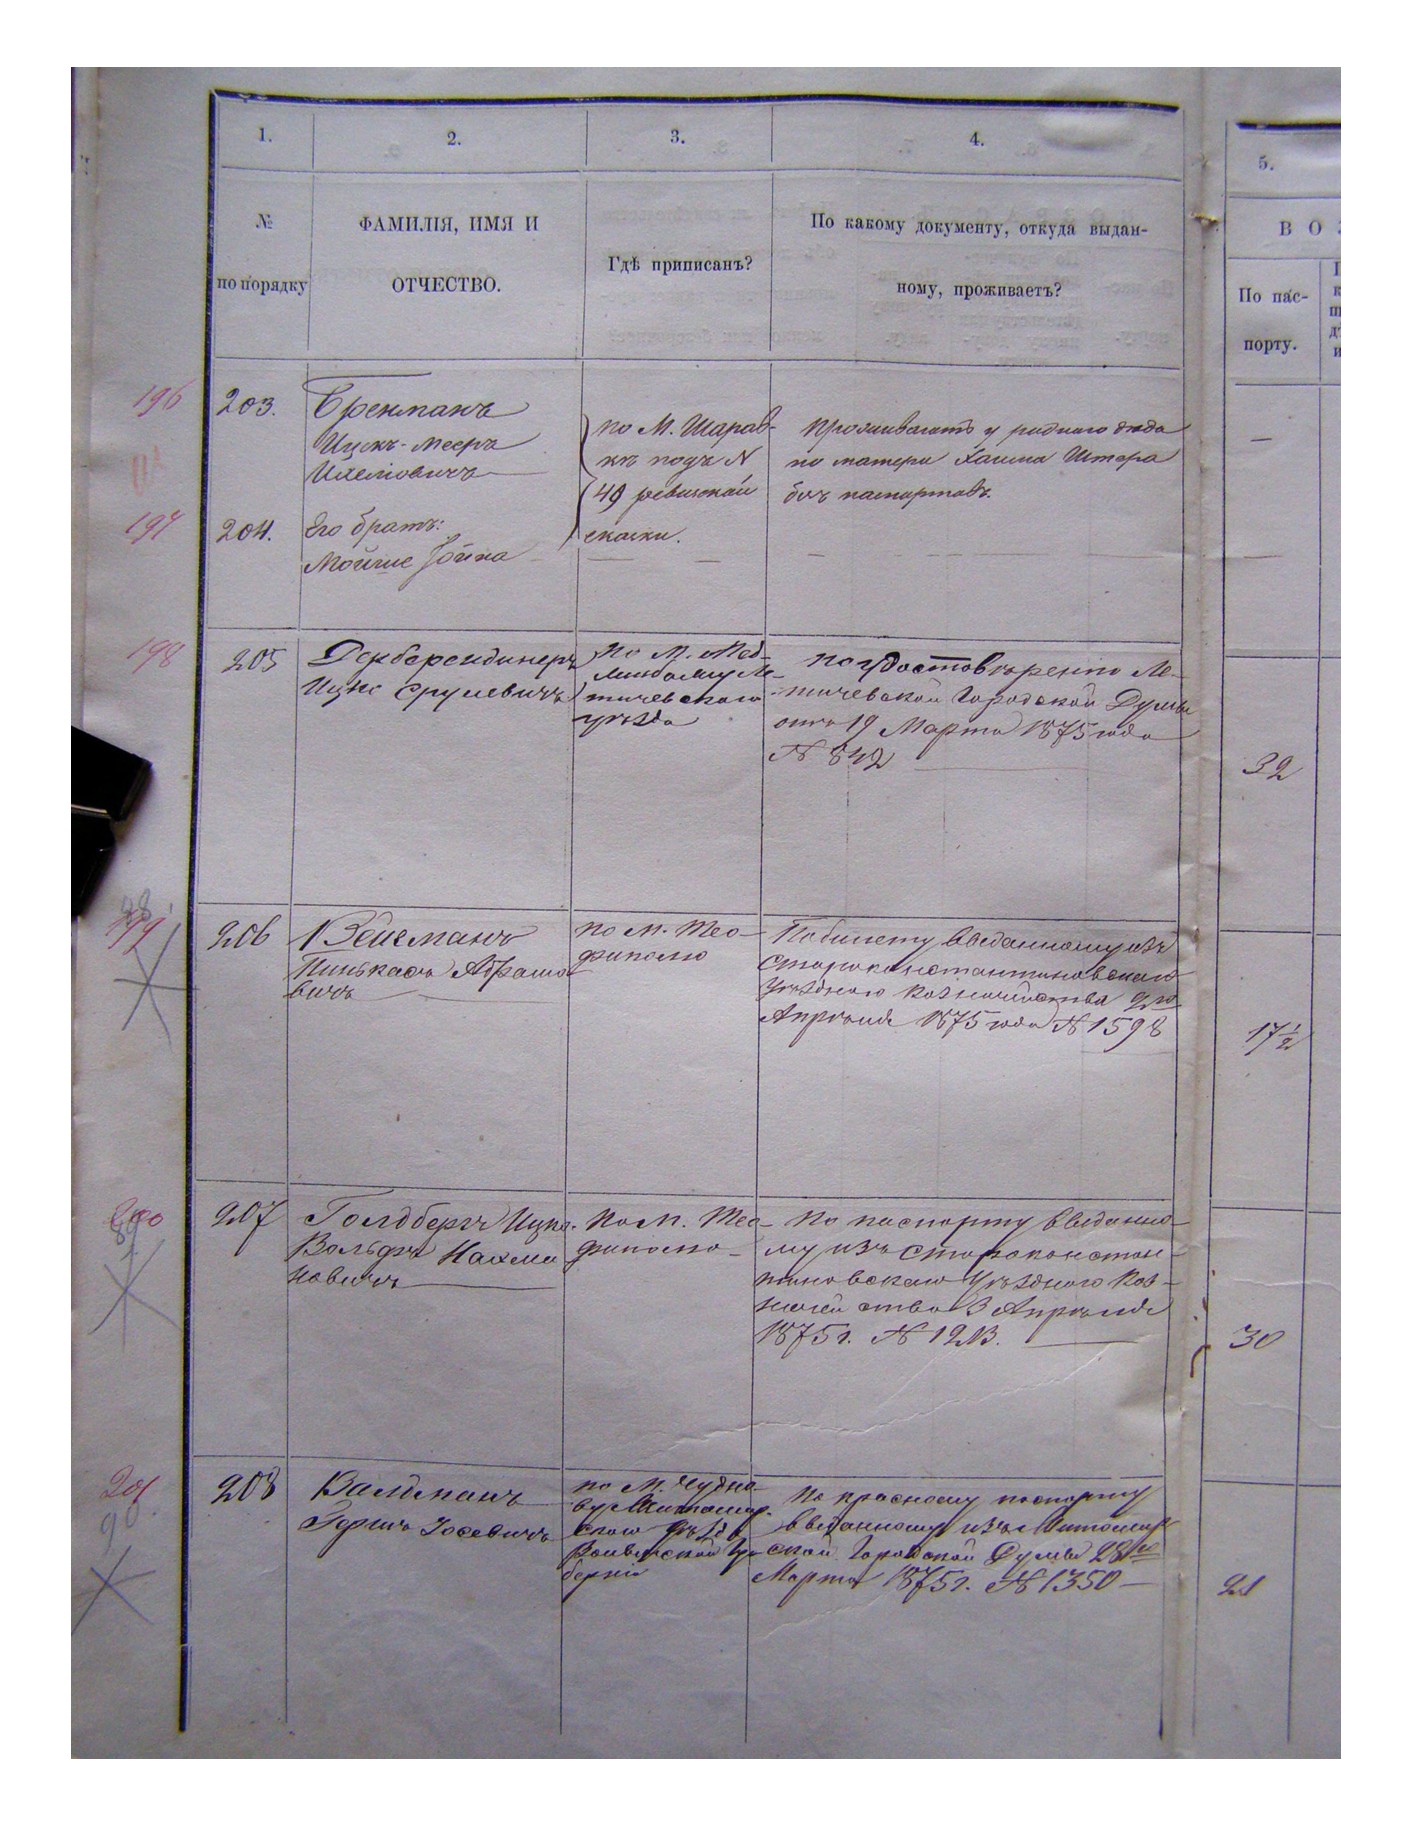 1.
2.
3.
4.
5.
№
по порядку
ФАМИЛІЯ, ИМЯ И
ОТЧЕСТВО.
Гдѣ приписанъ?
По какому документу, откуда выдан-
ному, проживаетъ?
В О З
По пас-
порту.
196
203.
Бренманъ
Ицкъ-Мееръ
по М. Шарав-
кѣ подъ N
49 ревизской
сказки.
Проживаетъ у роднаго дяда
по матери Хаима Штера
безъ паспортовъ.
197
204.
Его братъ:
Мойше Іойна
198
205
Декберейдинеръ
Ицко Срулевичъ
по М. Мед-
тичевскаго
уѣзда
по удостовѣренію Ле-
тичевской Городской Думы
отъ 19 Марта 1875 года
№ 842
32
88.
199
206
Вейсманъ
Пинькасъ Абрамо
вичъ
по М. Тео-
фиполю
По билету выданному изъ
Староконстантиновскаго
Уѣзднаго Казначейства 2го
Апрѣля 1875 года № 1598
17½
200
89
207
Голдбергъ Ицко-
Вольфъ Нахма
новичъ
по М. Тео-
фиполю
По паспорту выданно-
му изъ Староконстан-
тиновскаго Уѣзднаго Каз-
начейства 3 Апрѣля
1875 г. № 1213.
30
201
90
208
Валдманъ
Гершъ Іосевичъ
по М. Чудно-
ву Житомир-
скаго уѣзда
Волынской Гу-
берніи
По красному паспорту
выданному изъ Житомир-
ской Городской Думы 28го
Марта 1875 г. № 1350
21